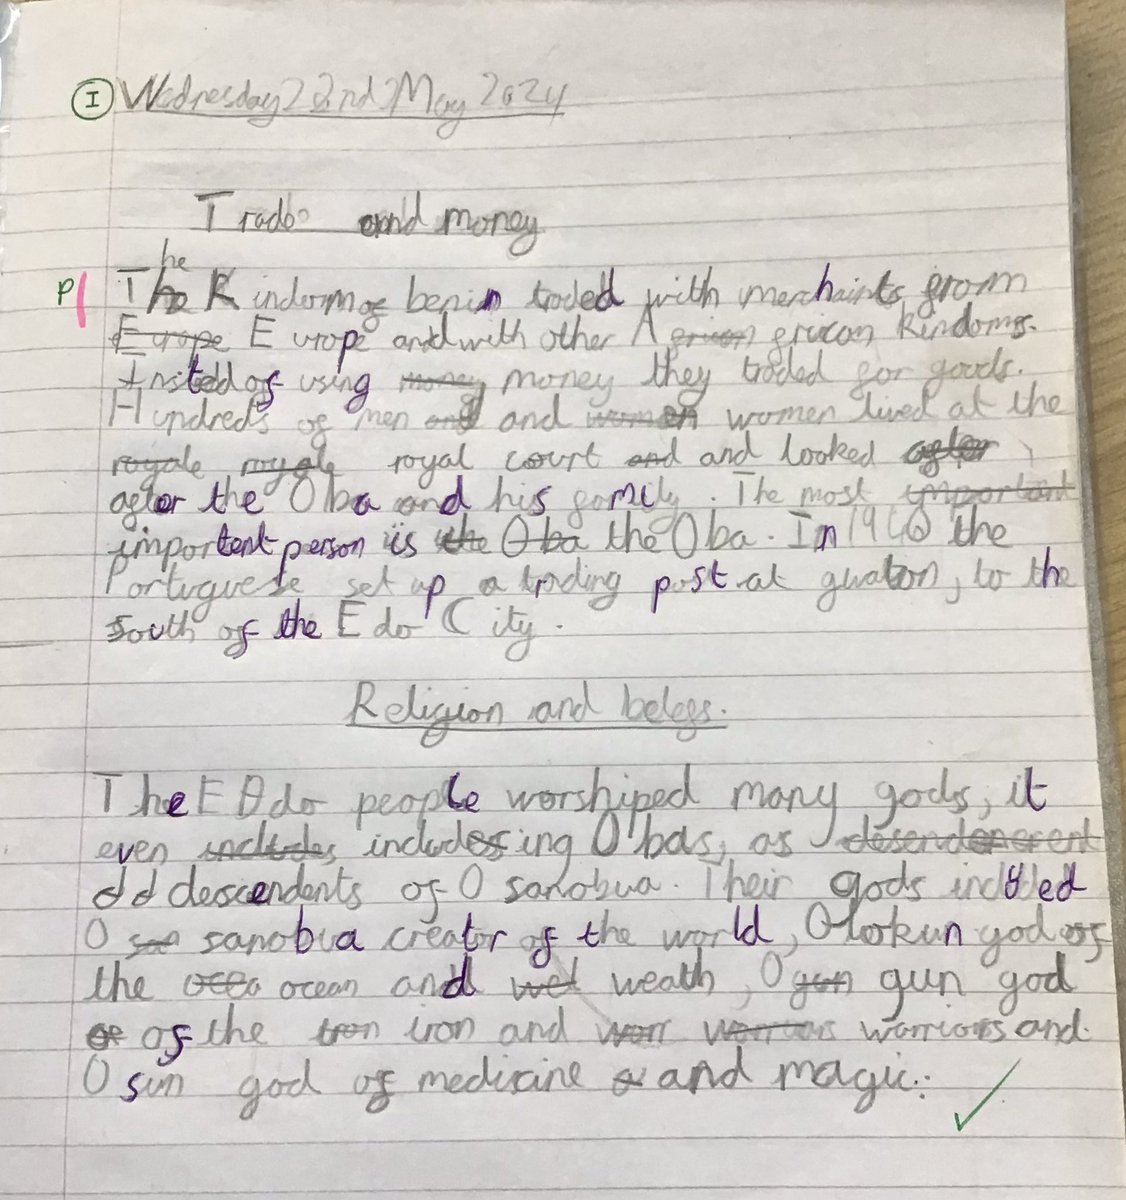 I Wednesday 22nd May 2024
Trade and money
he
P The Kindom of benin traded with merchaints from
Europe Europe and with other African frican Kindoms.
Insteld of using money money they traded for goods.
Hundreds of men and and women women lived at the
royale royale royal court and and looked after
after the Oba and his family. The most important
important person is the Oba the Oba. In the
Portuguese set up a trading post at gwaton, to the
South of the Edo City.
Religion and belefs.
The Edo people worshiped many gods, it
even includes including Obas, as
descendents of Osanobua. Their gods included
O sanobua creator of the world, Olokun god of
the ocean and wel weath, Ogun gun god
of of the iron iron and warr warriors and
Osun god of medicine a and magic.